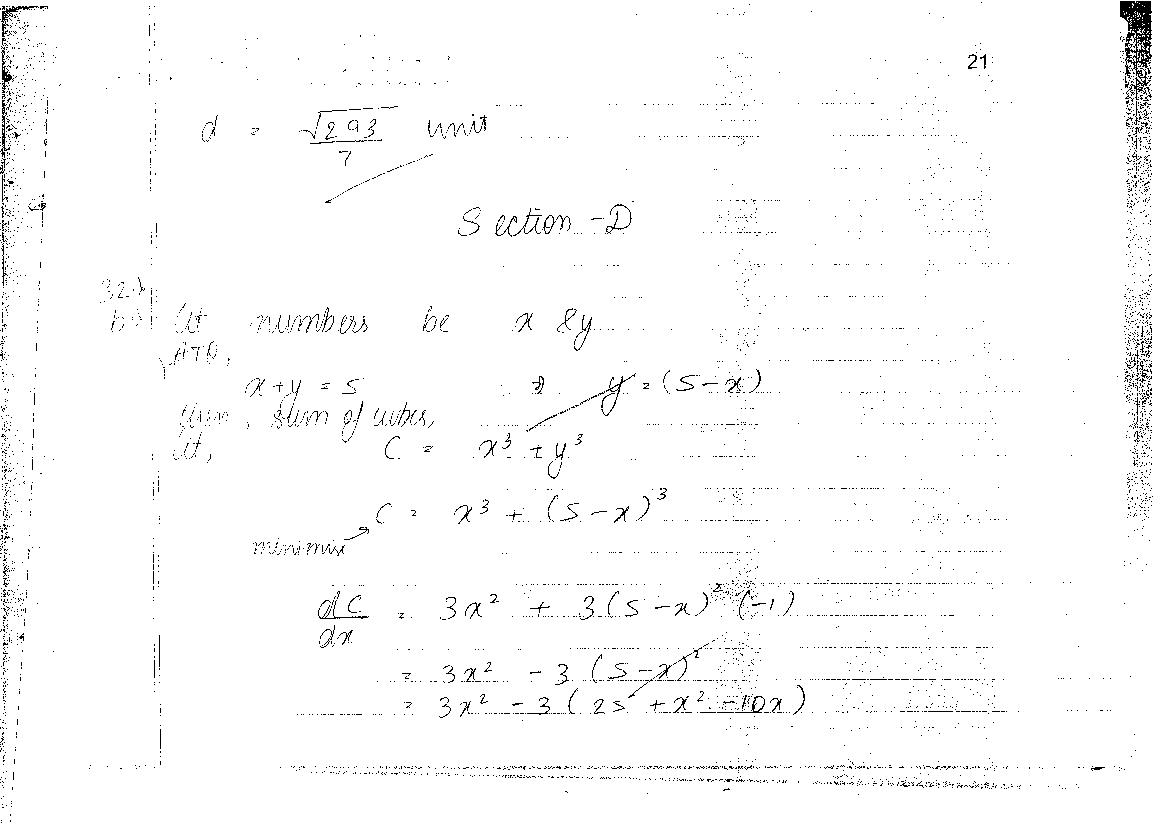 21
d = √293/7 unit
Section - D
32.)
b) let numbers be x & y
ATQ,
x + y = 5 ⇒ y = (5 - x)
given, sum of cubes,
let, C = x³ + y³
C = x³ + (5 - x)³
minimize
dC/dx = 3x² + 3(5 - x)² (-1)
= 3x² - 3(5 - x)²
= 3x² - 3(25 + x² - 10x)